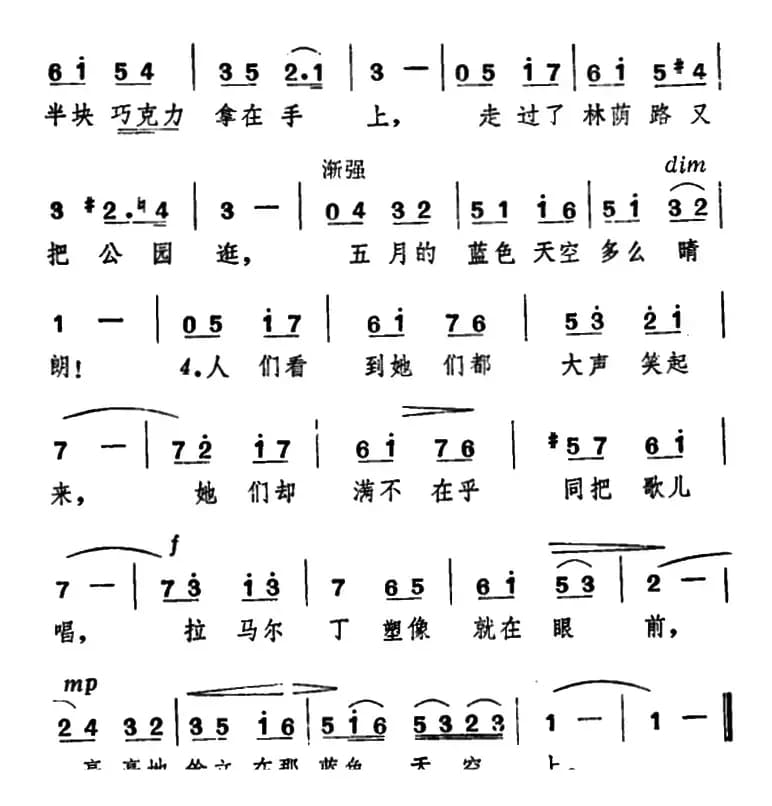 6 i 5 4 | 3 5 2.1 | 3 — | 0 5 i 7 | 6 i 5 #4 |
半块 巧克力 拿在 手 上， 走 过了 林荫 路 又
渐强 dim
3 #2.♮4 | 3 — | 0 4 3 2 | 5 1 i 6 | 5 i 3 2 |
把 公 园 逛， 五 月的 蓝色 天空 多么 晴
1 — | 0 5 i 7 | 6 i 7 6 | 5 3̇ 2̇ i |
朗！ 4.人 们看 到她 们都 大声 笑起
7 — | 7 2̇ i 7 | 6 i 7 6 | #5 7 6 i |
来， 她 们却 满不 在乎 同把 歌儿
f
7 — | 7 3̇ i 3̇ | 7 6 5 | 6 i 5 3 | 2 — |
唱， 拉 马尔 丁 塑像 就在 眼 前，
mp
2 4 3 2 | 3 5 i 6 | 5 i 6 5 3 2 3 | 1 — | 1 — ‖